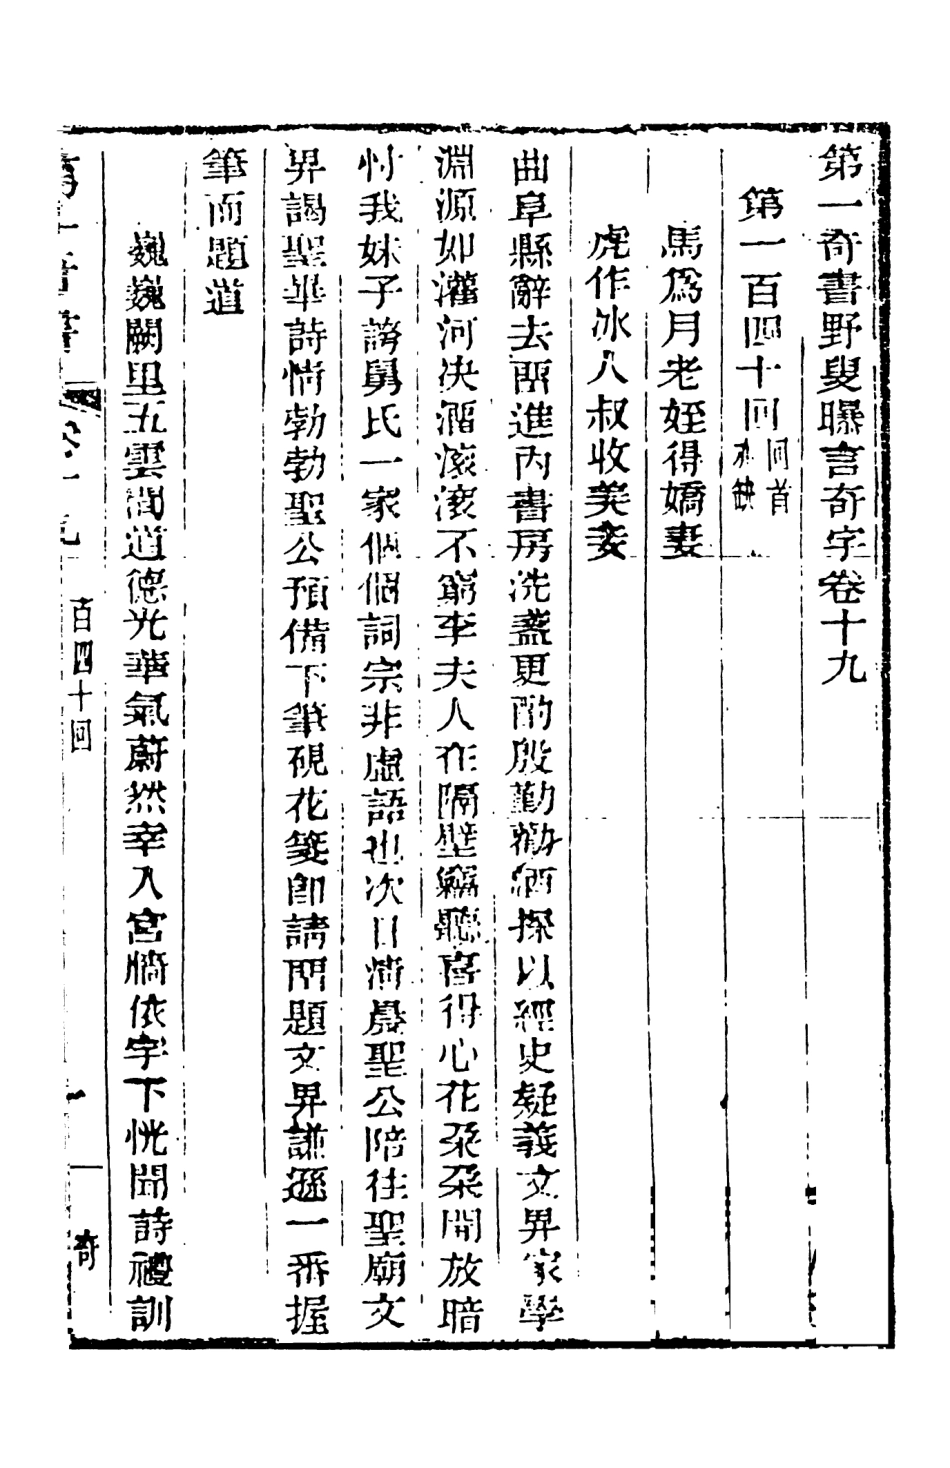 第一奇書野叟曝言奇字卷十九
第一百四十回回首亦缺
馬爲月老姪得嬌妻
虎作冰人叔收美妾
曲阜縣辭去兩進內書房洗盞更酌殷勤勸酒探以經史疑義文昇家學
淵源如灌河決溜滚滚不窮李夫人在隔壁竊聽喜得心花朶朶開放暗
忖我妹子誇舅氏一家個個詞宗非虛語也次日淸晨聖公陪往聖廟文
昇謁聖畢詩情勃勃聖公預備下筆硯花箋卽請留題文昇謙遜一番握
筆而題道
巍巍闕里五雲間道德光華氣蔚然幸入宮牆依宇下恍聞詩禮訓
第一奇書
卷十九
百四十回
一
奇